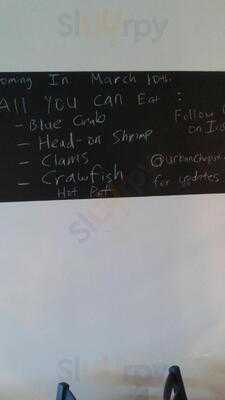 In March 10th.
All You Can Eat :
- Blue Crab
- Head-on Shrimp
- Clams
- Crawfish
Hot Pot
Follow
on
for updates
sluurpy
sluurpy
sluurpy
sluurpy